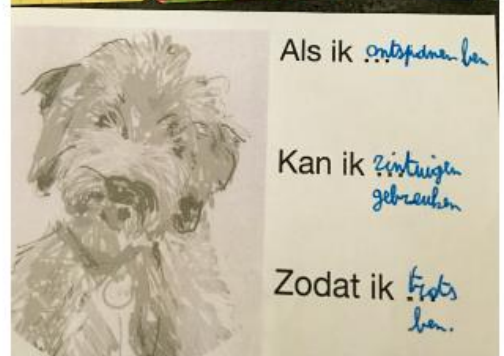 Als ik ... ontspannen ben
Kan ik ... zintuigen
gebruiken
Zodat ik ... trots
ben.